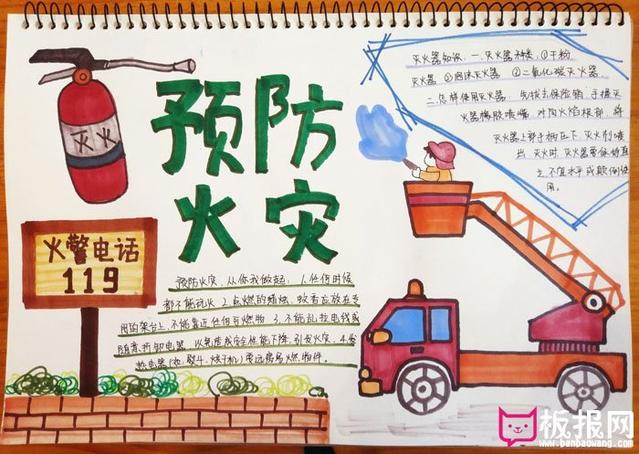 预防
火灾
灭火
火警电话
119
灭火器知识：一.灭火器种类：①干粉
灭火器 ②泡沫灭火器 ③二氧化碳灭火器
二.怎样使用灭火器：先拔去保险销 手握灭
火器橡胶喷嘴，对向火焰根部，将
灭火器上部手柄压下，灭火剂喷
出 灭火时，灭火器要保持直
立 不宜水平或颠倒使
用。
预防火灾，从你我做起：1.任何时候
都不能玩火 2.点燃的蜡烛、蚊香应放在专
用的架台上，不能靠近任何可燃物 3.不能乱拉电线或
随意拆卸电器，以免造成安全性能下降，引发火灾。4.发
热电器(熨斗、烘干机)要远离易燃物件。
板报网
www.banbaowang.com